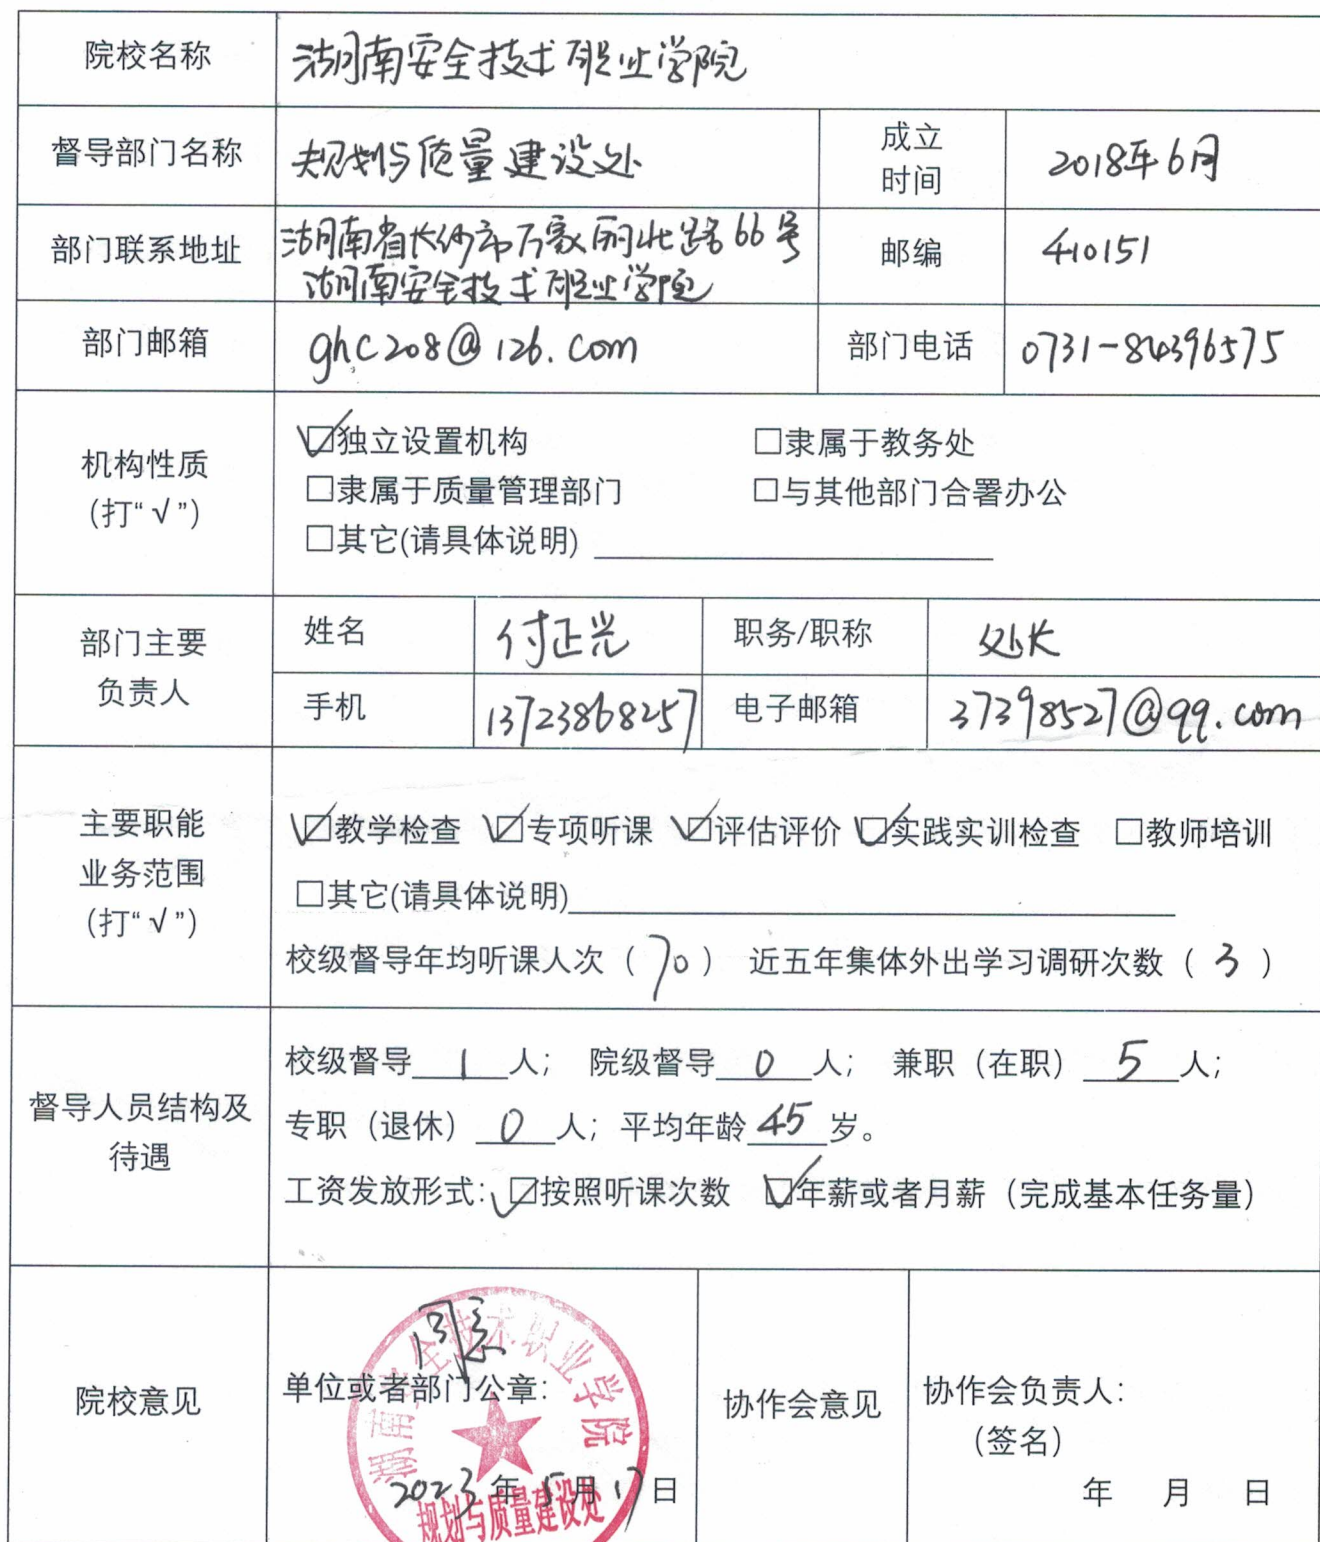 院校名称 湖南安全技术职业学院
督导部门名称 规划与质量建设处 成立时间 2018年6月
部门联系地址 湖南省长沙市万家丽北路66号
湖南安全技术职业学院
邮编 410151
部门邮箱 ghc208@126.com 部门电话 0731-84396575
机构性质
(打“√”)
☑独立设置机构 □隶属于教务处
□隶属于质量管理部门 □与其他部门合署办公
□其它(请具体说明)
部门主要
负责人
姓名 付正光 职务/职称 处长
手机 13723868257 电子邮箱 37398527@qq.com
主要职能
业务范围
(打“√”)
☑教学检查 ☑专项听课 ☑评估评价 ☑实践实训检查 □教师培训
□其它(请具体说明)
校级督导年均听课人次（70） 近五年集体外出学习调研次数（3）
督导人员结构及
待遇
校级督导1人； 院级督导0人； 兼职（在职）5人；
专职（退休）0人；平均年龄45岁。
工资发放形式：☑按照听课次数 ☑年薪或者月薪（完成基本任务量）
院校意见
同意
单位或者部门公章：
湖南安全技术职业学院
规划与质量建设处
2023年5月17日
协作会意见
协作会负责人：
（签名）
年 月 日